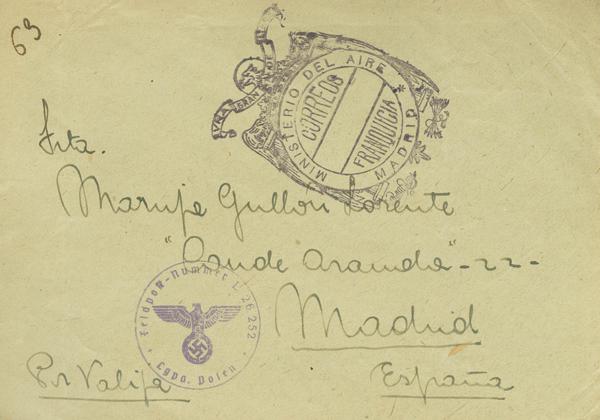 69
MINISTERIO DEL AIRE * MADRID *
CORREOS
FRANQUICIA
Srta.
Maruja Gullon Lorente
"Conde Aranda" - 22 -
Madrid
España
Por Valija
Feldpost-Nummer L 26252
Lgpa. Posen